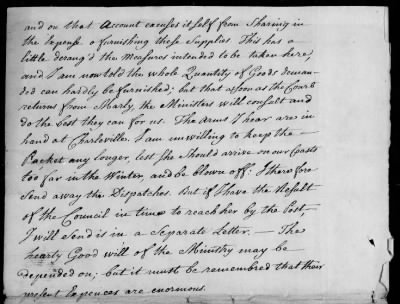 and on that Account excuses itself from Sharing in
the Expense of furnishing these Supplies. This has a
little derang'd the Measures intended to be taken here,
and I am now told the whole Quantity of Goods deman-
ded can hardly be furnished; but that as soon as the Court
returns from Marly, the Ministers will consult and
do the best they can for us. The Arms I hear are in
hand at Charleville. I am unwilling to keep the
Packet any longer, lest she should arrive on our Coasts
too far in the Winter, and be blown off. I therefore
send away the Dispatches. But if I have the Result
of the Council in time to reach her by the Post,
I will send it in a Separate Letter. — The
hearty Good will of the Ministry may be
depended on; but it must be remembred that their
present Expences are enormous.